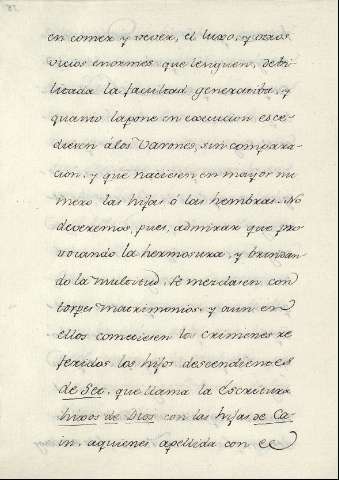 en comer y vever, el luxo, y otros
vicios enormes que tenguen, debi-
litada la facultad generatiba, y
quanto la pone en execucion esce-
dieren á los Varones, sin compara-
cion, y que naciesen en mayor nu
mero las hijas ó las hembras. No
deveremos, pues, admirar que pro
vocando la hermosura, y brindan-
do la multitud, se mezclasen con
torpes matrimonios, y aun en
ellos cometiesen los crimenes re
feridos los hijos descendientes
de Set, que llama la Escritura
hixos de Dios con las hijas de Ca-
in, aquienes apellida con el